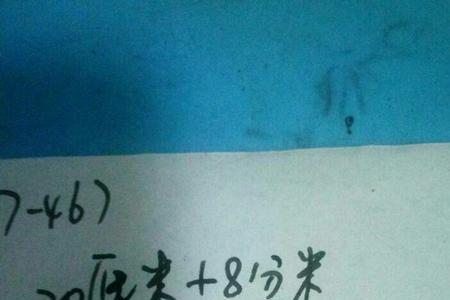 7-46)
20厘米+8分米